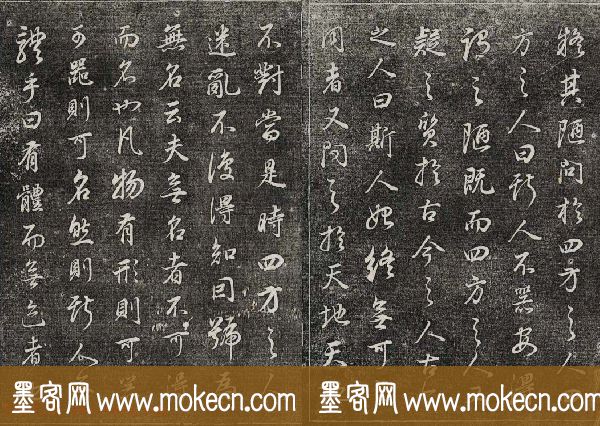 疑其陋問於四方之人四
方之人曰斯人不器安得
謂之陋既而四方之人又
疑之質於古今之人古
之人曰斯人始終無可
同者又問之於天地天
不對當是時四方之人
迷亂不復得知因號為
無名云夫無名者不可得
而名也凡物有形則可器
可器則可名然則斯人
體乎曰有體而無迹者
墨客网 www.mokecn.com
墨客网 www.mokecn.com